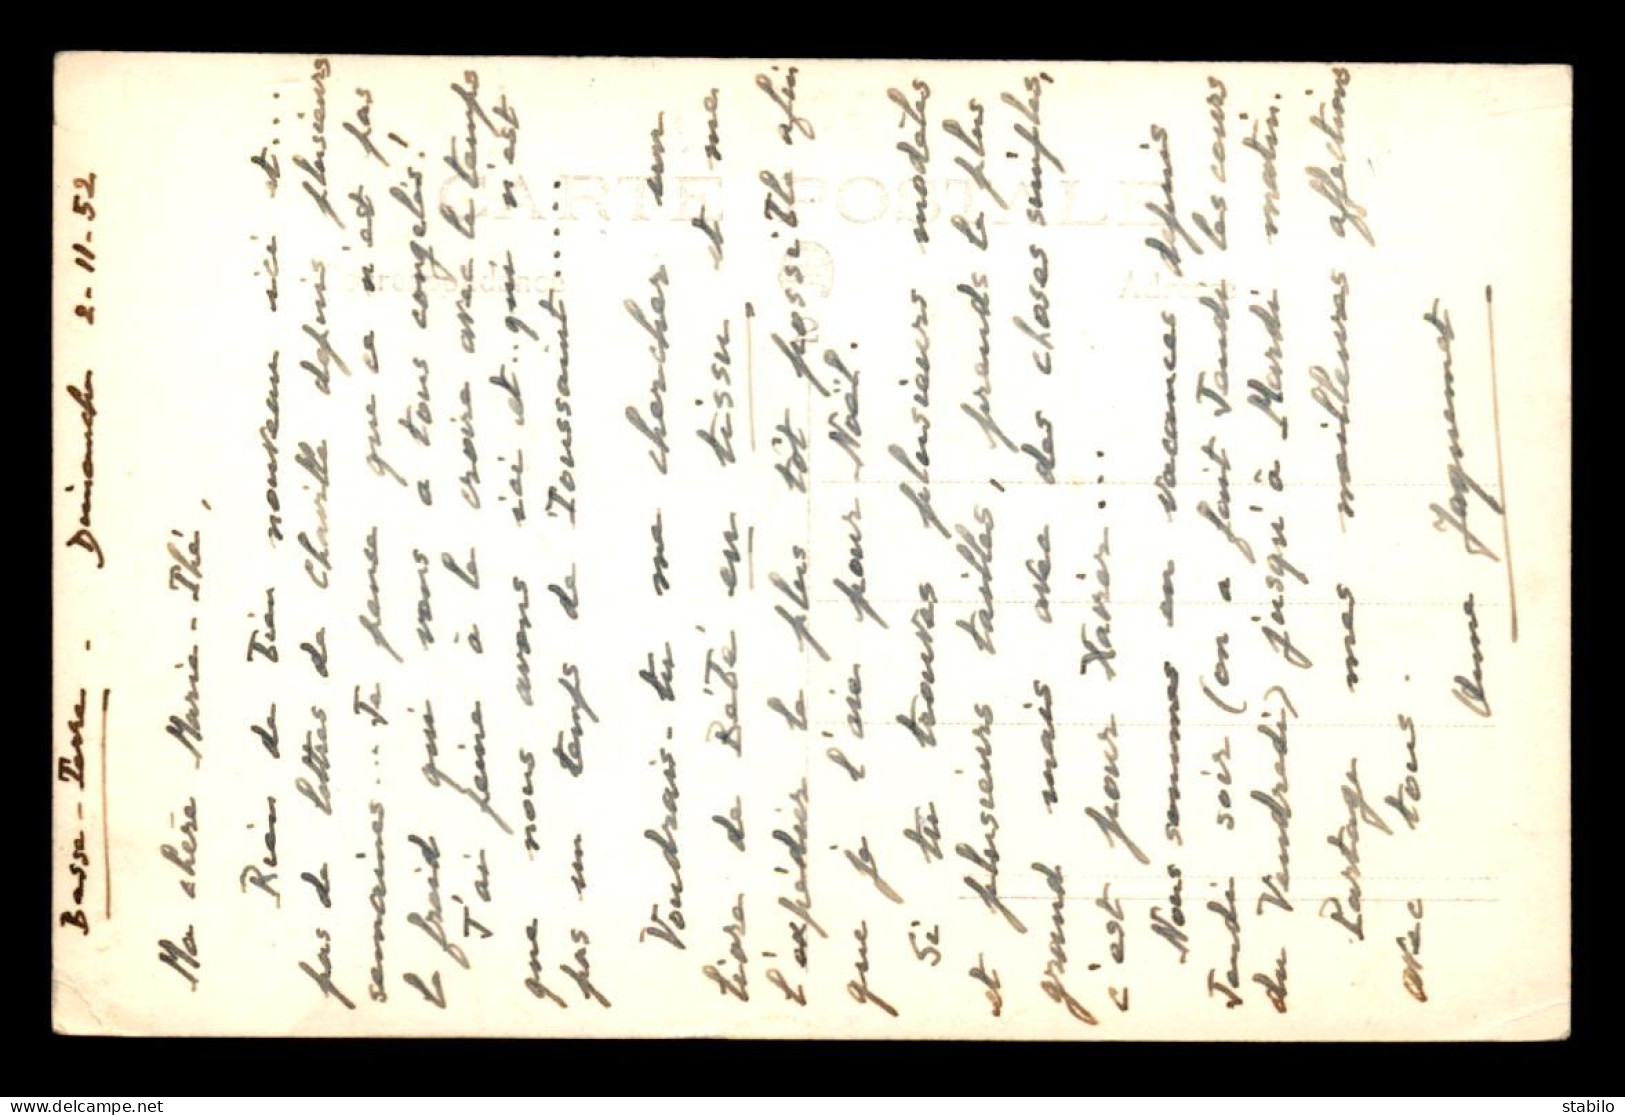 Basse-Terre - Dimanche 2-11-52
Ma chère Marie-Thé,
Rien de bien nouveau ici et...
pas de lettres de Chaville depuis plusieurs
semaines... Je pense que ce n'est pas
le froid qui vous a tous congelés!
J'ai peine à le croire avec le temps
que nous avons ici et.. qui n'est
pas un temps de Toussaint.....
Voudrais-tu me chercher un
livre de Bébé en tissu et me
l'expédier le plus tôt possible afin
que je l'aie pour Noël.
Si tu trouves plusieurs modèles
et plusieurs tailles, prends le plus
grand mais avec des choses simples,
c'est pour Xavier...
Nous sommes en vacances depuis
Jeudi soir (on a fait Jeudi les cours
du Vendredi) jusqu'à Mardi matin.
Partage mes meilleures affections
avec tous.
Anne Jaquemet
CARTE POSTALE
Correspondance
Adresse
stabilo